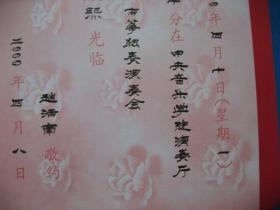 年四月十日(星期一)
分在中央音乐学院演奏厅
古筝独奏演奏会
光临
敬约
二000年四月八日